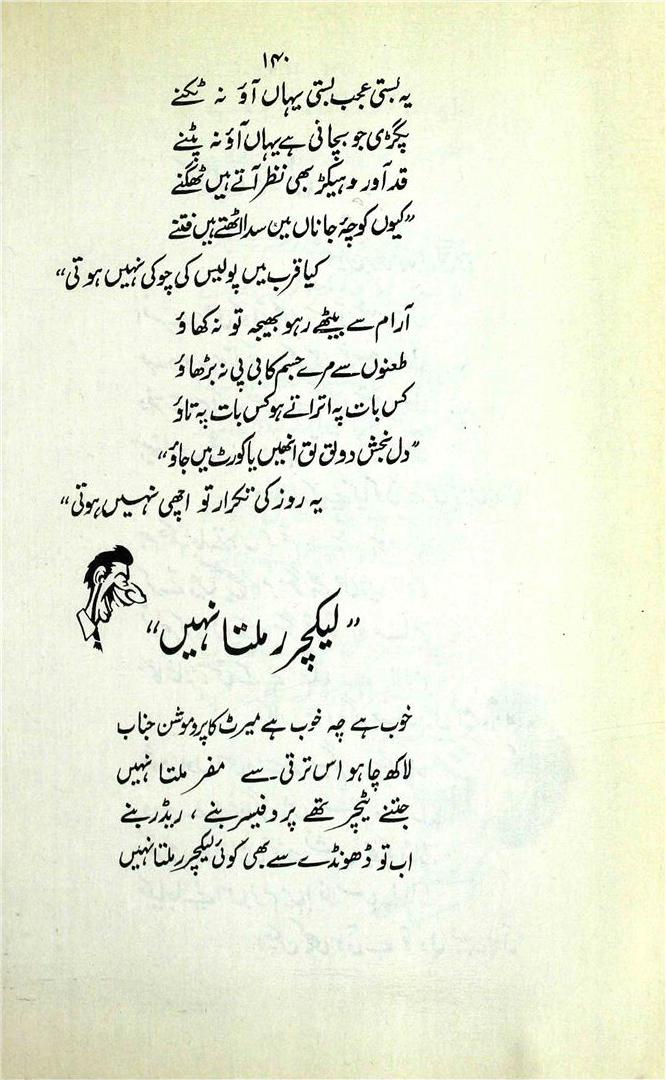 ۱۴۰
یہ بستی عجب بستی یہاں آؤ نہ ٹکنے
پگڑی جو بچانی ہے یہاں آؤ نہ پٹنے
قد آور و ہیکڑ بھی نظر آتے ہیں ٹھگنے
”کیوں کوچۂ جاناں میں سدا اٹھتے ہیں فتنے
کیا قرب میں پولیس کی چوکی نہیں ہوتی“
آرام سے بیٹھے رہو بھیجہ تو نہ کھاؤ
طعنوں سے مرے جسم کا بی پی نہ بڑھاؤ
کس بات پہ اتراتے ہو کس بات پہ تاؤ
”دل بخش دو لق لق انھیں یا کورٹ میں جاؤ“
یہ روز کی تکرار تو اچھی نہیں ہوتی“
”لیکچرر ملتا نہیں“
خوب ہے چہ خوب ہے میرٹ کا پروموشن جناب
لاکھ چاہو اس ترقی سے مفر ملتا نہیں
جتنے ٹیچر تھے پروفیسر بنے ، ریڈر بنے
اب تو ڈھونڈے سے بھی کوئی لیکچرر ملتا نہیں